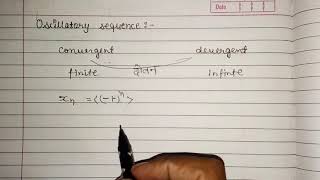 Date
Oscillatory sequence :-
convergent devergent
finite दोलन Infinite
xₙ = <(-1)ⁿ>